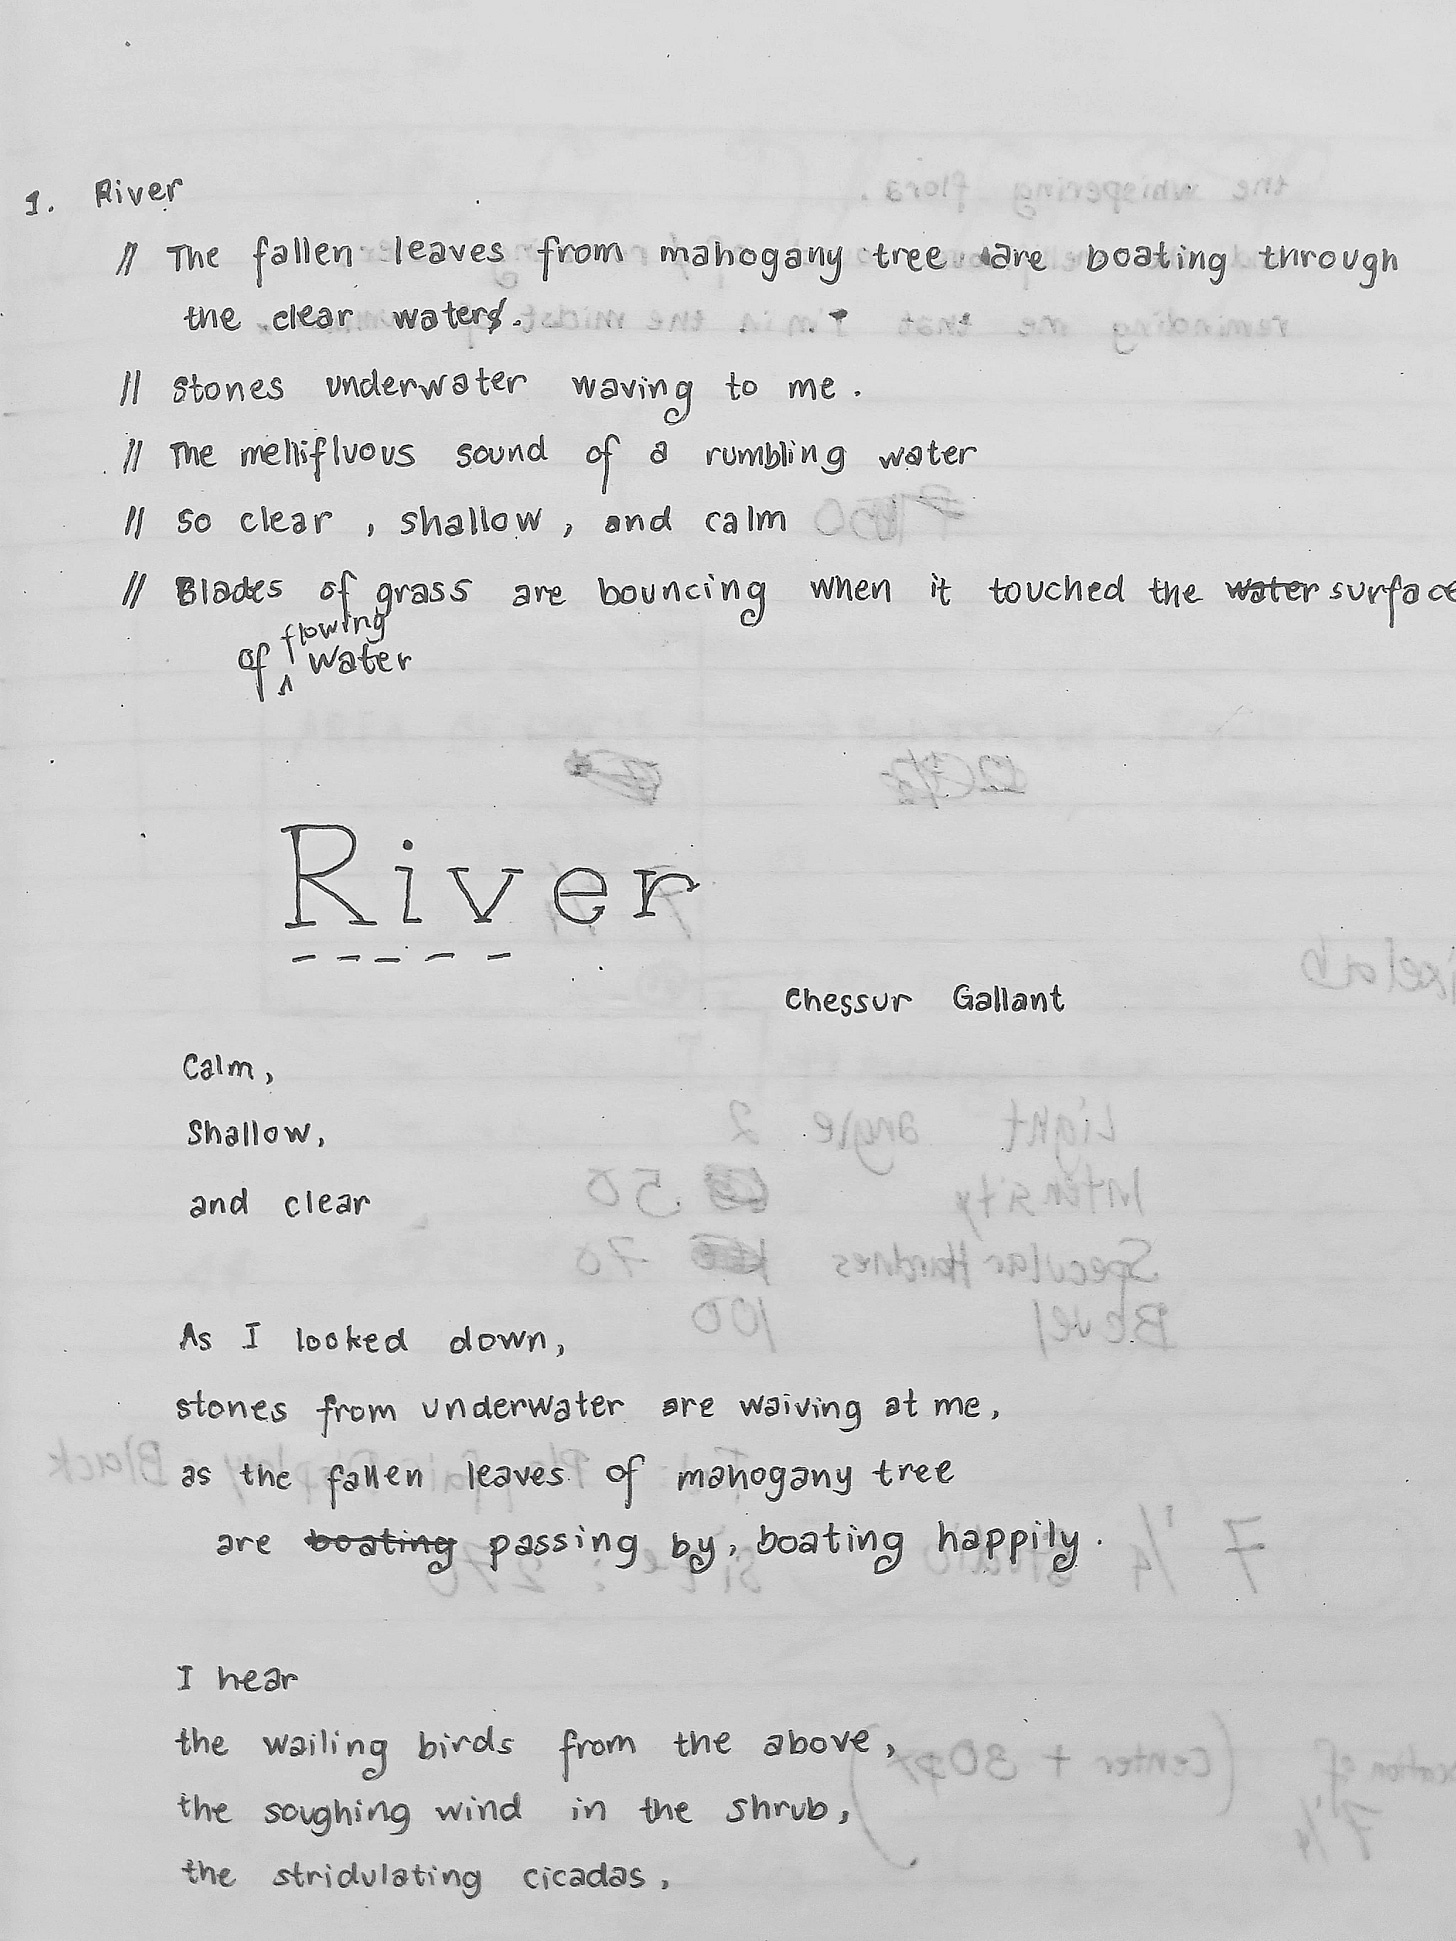 1. River
// The fallen leaves from mahogany tree are boating through
the clear water.
// stones underwater waving to me.
// The mellifluous sound of a rumbling water
// so clear, shallow, and calm
// Blades of grass are bouncing when it touched the water surface
of flowing water
River
Chessur Gallant
Calm,
Shallow,
and clear
As I looked down,
stones from underwater are waiving at me,
as the fallen leaves of mahogany tree
are boating passing by, boating happily.
I hear
the wailing birds from the above,
the soughing wind in the shrub,
the stridulating cicadas,